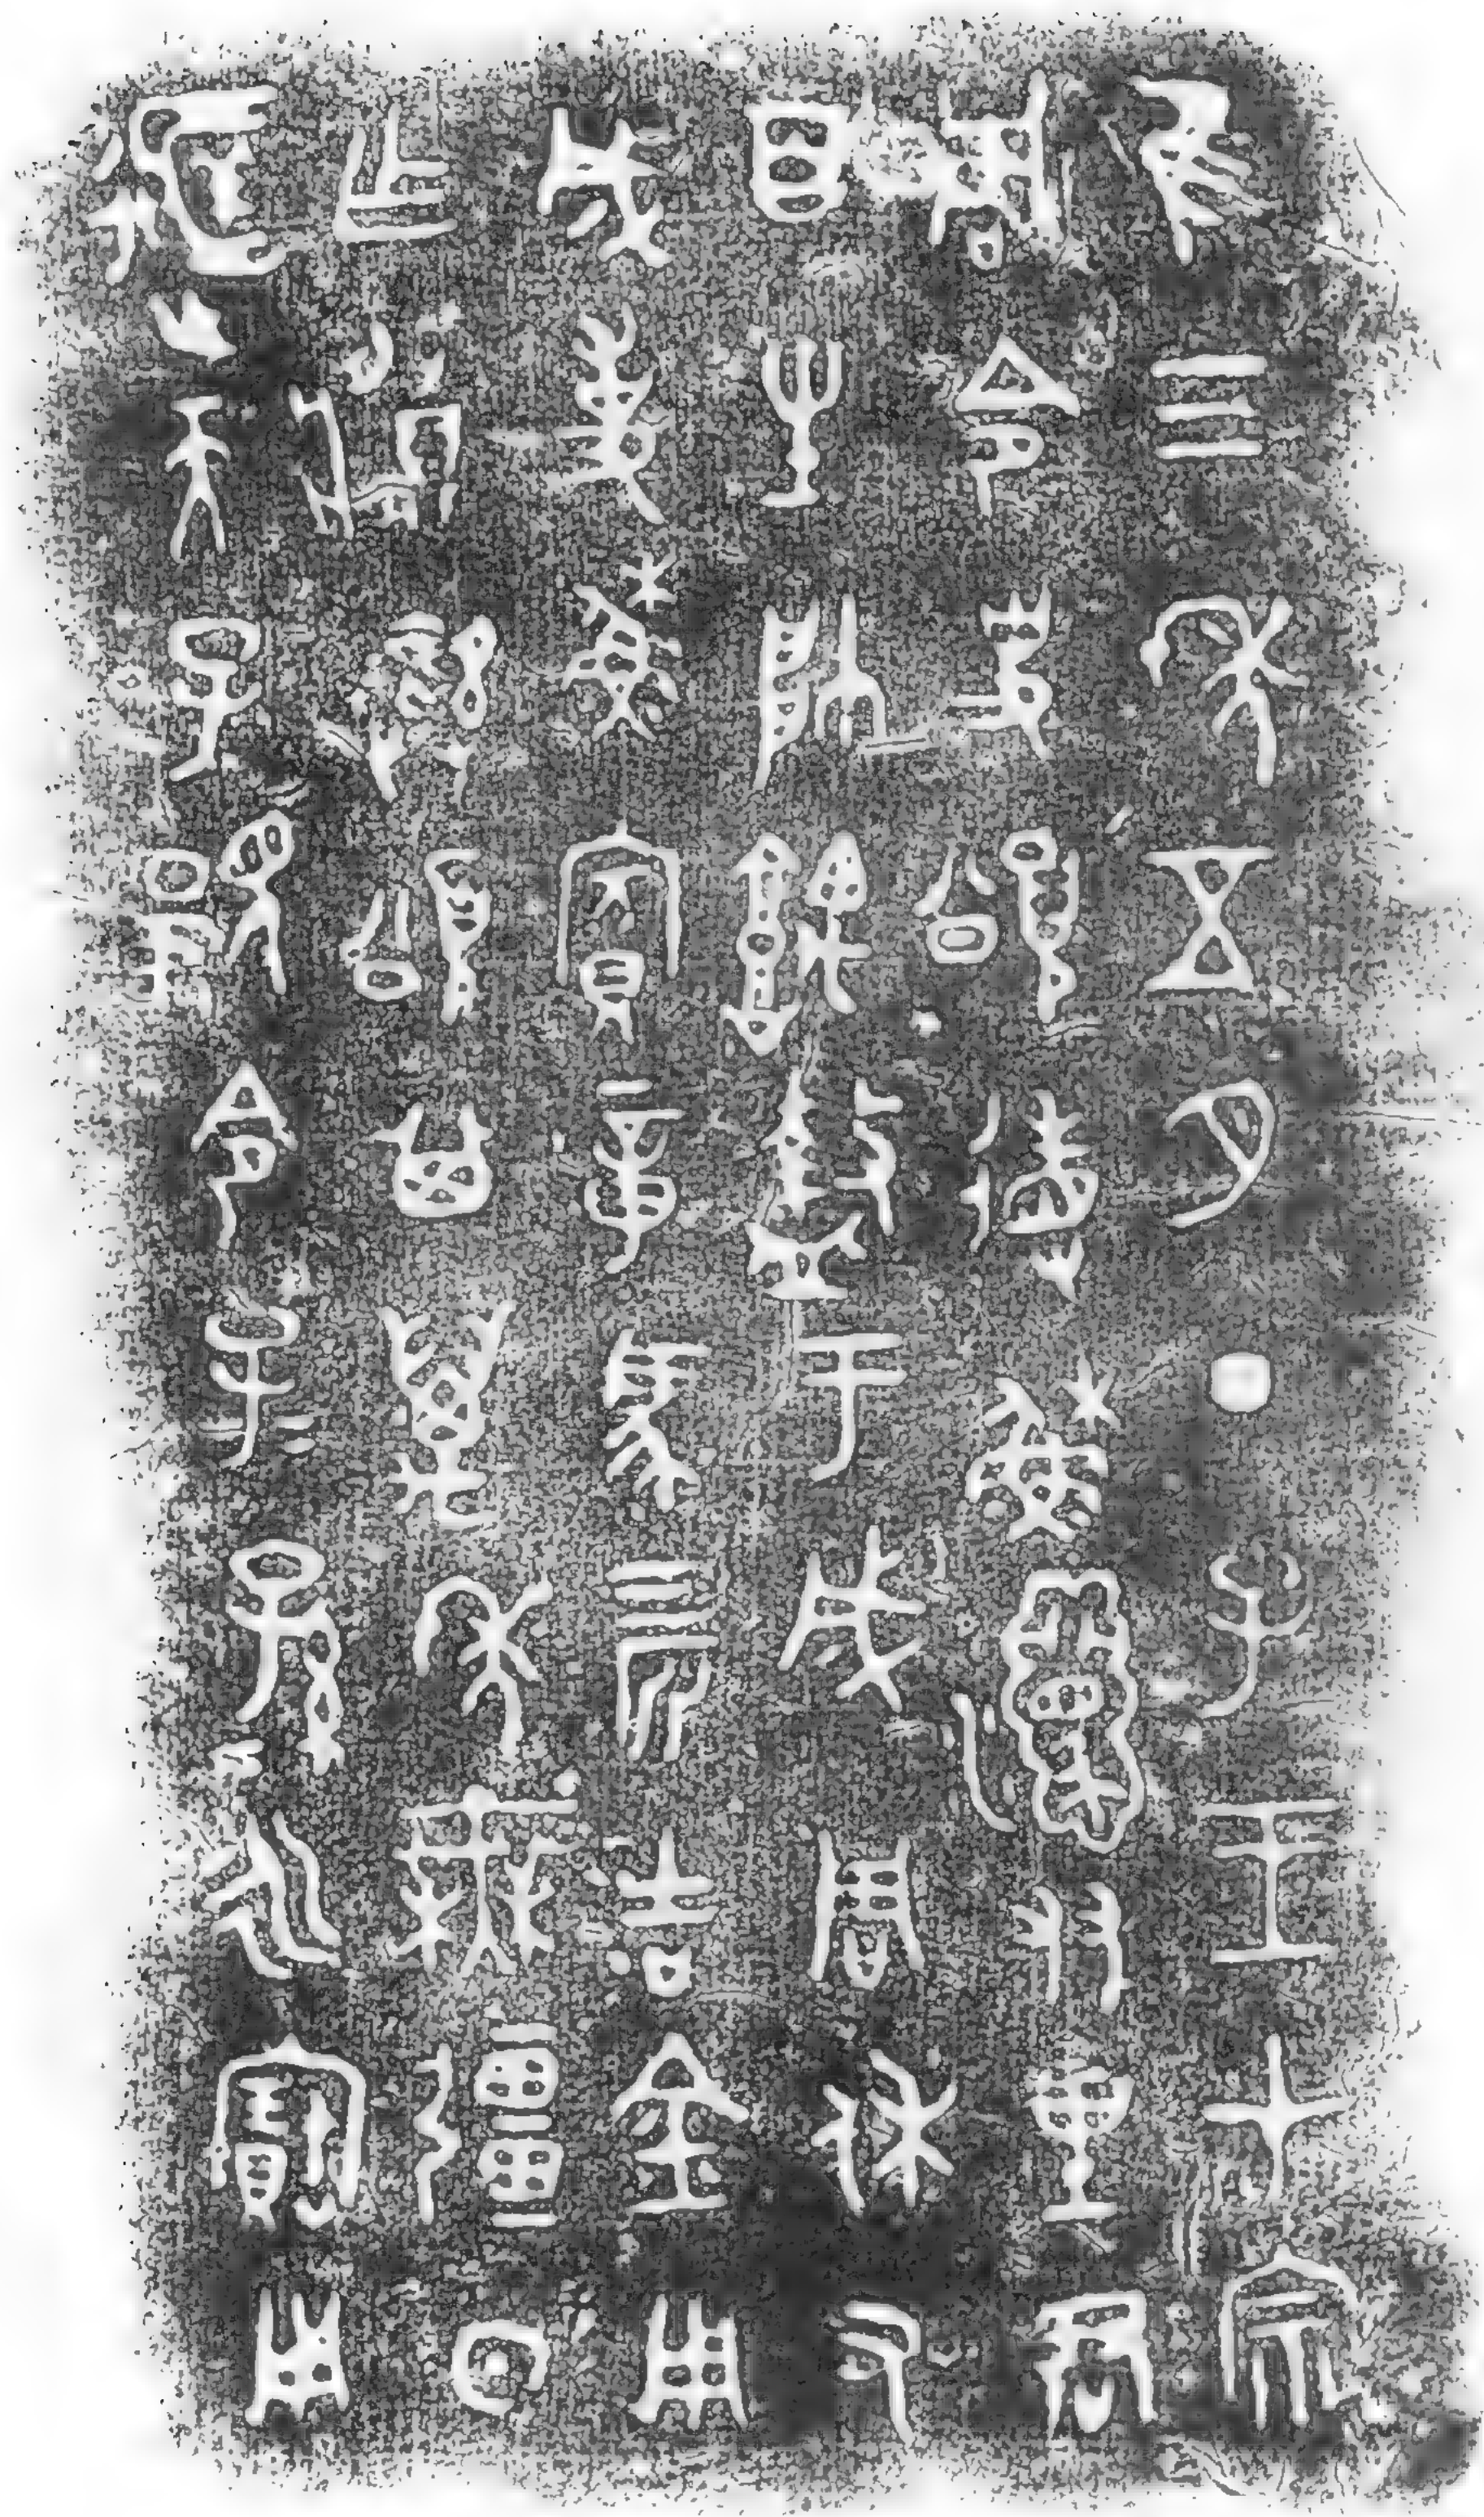 隹三年五月丁巳王才宗
周令史頌省蘇友里君
百生帥盩于成周休又
成事蘇賓章馬四匹吉金用
乍䵼彝頌其萬年無疆日
天子顯令子=孫=永寶用